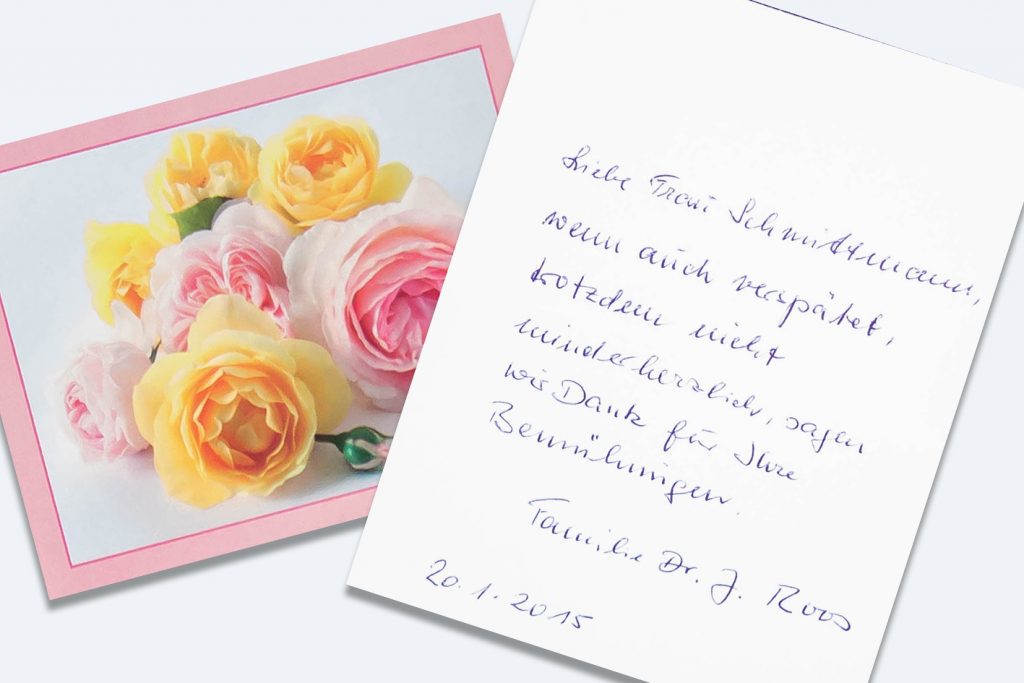 Liebe Frau Schmittmann,
wenn auch verspätet,
trotzdem nicht
minderherzlich, sagen
wir Dank für Ihre
Bemühungen.
Familie Dr. J. Roos
20.1.2015